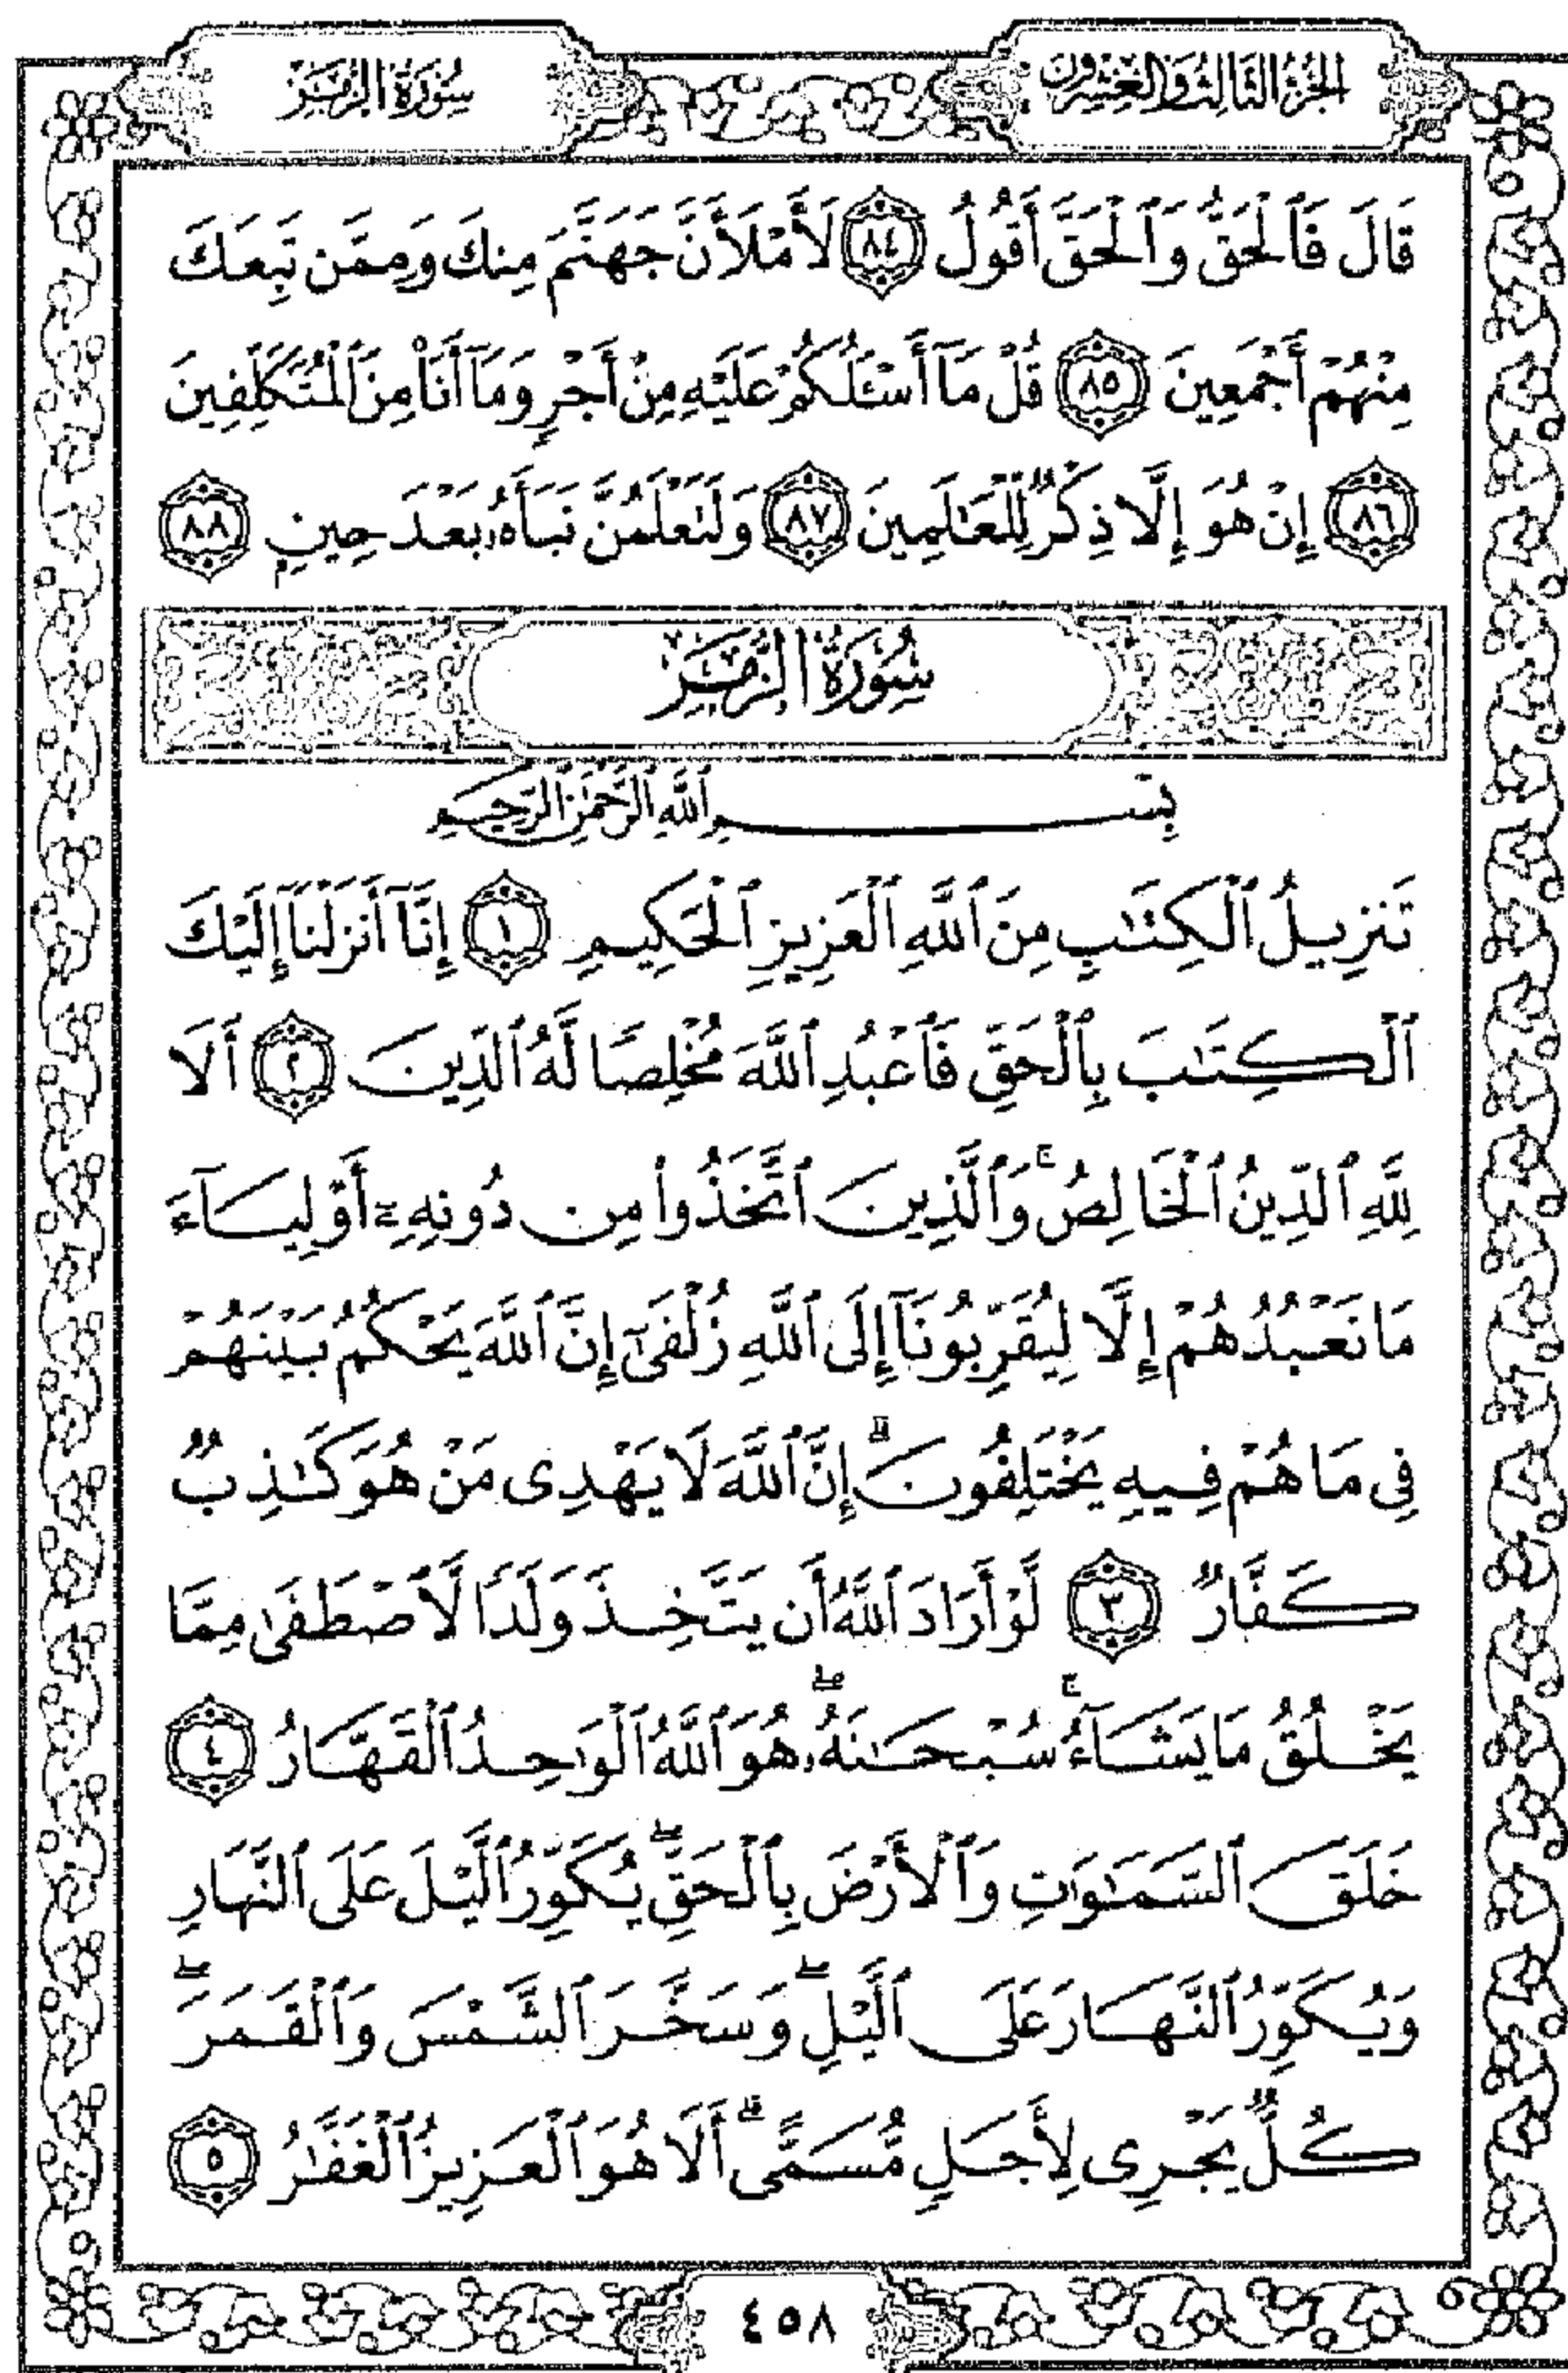 الجزء الثالث والعشرون
سورة الزمر
قَالَ فَٱلْحَقُّ وَٱلْحَقَّ أَقُولُ ٨٤ لَأَمْلَأَنَّ جَهَنَّمَ مِنكَ وَمِمَّن تَبِعَكَ
مِنْهُمْ أَجْمَعِينَ ٨٥ قُلْ مَآ أَسْـَٔلُكُمْ عَلَيْهِ مِنْ أَجْرٍ وَمَآ أَنَا۠ مِنَ ٱلْمُتَكَلِّفِينَ
٨٦ إِنْ هُوَ إِلَّا ذِكْرٌ لِّلْعَٰلَمِينَ ٨٧ وَلَتَعْلَمُنَّ نَبَأَهُۥ بَعْدَ حِينٍ ٨٨
سُورَةُ الزُّمَرِ
بِسْمِ ٱللَّهِ ٱلرَّحْمَٰنِ ٱلرَّحِيمِ
تَنزِيلُ ٱلْكِتَٰبِ مِنَ ٱللَّهِ ٱلْعَزِيزِ ٱلْحَكِيمِ ١ إِنَّآ أَنزَلْنَآ إِلَيْكَ
ٱلْكِتَٰبَ بِٱلْحَقِّ فَٱعْبُدِ ٱللَّهَ مُخْلِصًا لَّهُ ٱلدِّينَ ٢ أَلَا
لِلَّهِ ٱلدِّينُ ٱلْخَالِصُ ۚ وَٱلَّذِينَ ٱتَّخَذُوا۟ مِن دُونِهِۦٓ أَوْلِيَآءَ
مَا نَعْبُدُهُمْ إِلَّا لِيُقَرِّبُونَآ إِلَى ٱللَّهِ زُلْفَىٰٓ إِنَّ ٱللَّهَ يَحْكُمُ بَيْنَهُمْ
فِى مَا هُمْ فِيهِ يَخْتَلِفُونَ ۗ إِنَّ ٱللَّهَ لَا يَهْدِى مَنْ هُوَ كَٰذِبٌ
كَفَّارٌ ٣ لَّوْ أَرَادَ ٱللَّهُ أَن يَتَّخِذَ وَلَدًا لَّٱصْطَفَىٰ مِمَّا
يَخْلُقُ مَا يَشَآءُ ۚ سُبْحَٰنَهُۥ ۖ هُوَ ٱللَّهُ ٱلْوَٰحِدُ ٱلْقَهَّارُ ٤
خَلَقَ ٱلسَّمَٰوَٰتِ وَٱلْأَرْضَ بِٱلْحَقِّ ۖ يُكَوِّرُ ٱلَّيْلَ عَلَى ٱلنَّهَارِ
وَيُكَوِّرُ ٱلنَّهَارَ عَلَى ٱلَّيْلِ ۖ وَسَخَّرَ ٱلشَّمْسَ وَٱلْقَمَرَ ۖ
كُلٌّ يَجْرِى لِأَجَلٍ مُّسَمًّى ۗ أَلَا هُوَ ٱلْعَزِيزُ ٱلْغَفَّٰرُ ٥
٤٥٨